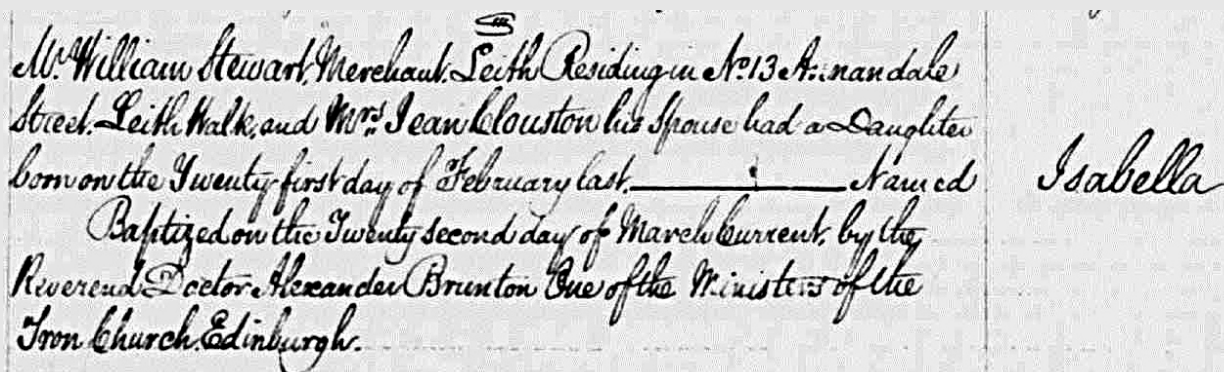 Mr. William Stewart, Merchant, Leith Residing in No. 13 Annandale
Street, Leith Walk, and Mrs. Jean Clouston his Spouse had a Daughter
born on the Twenty first day of February last, Named Isabella
Baptized on the Twenty second day of March Current, by the
Reverend Doctor Alexander Brunton One of the Ministers of the
Tron Church, Edinburgh.